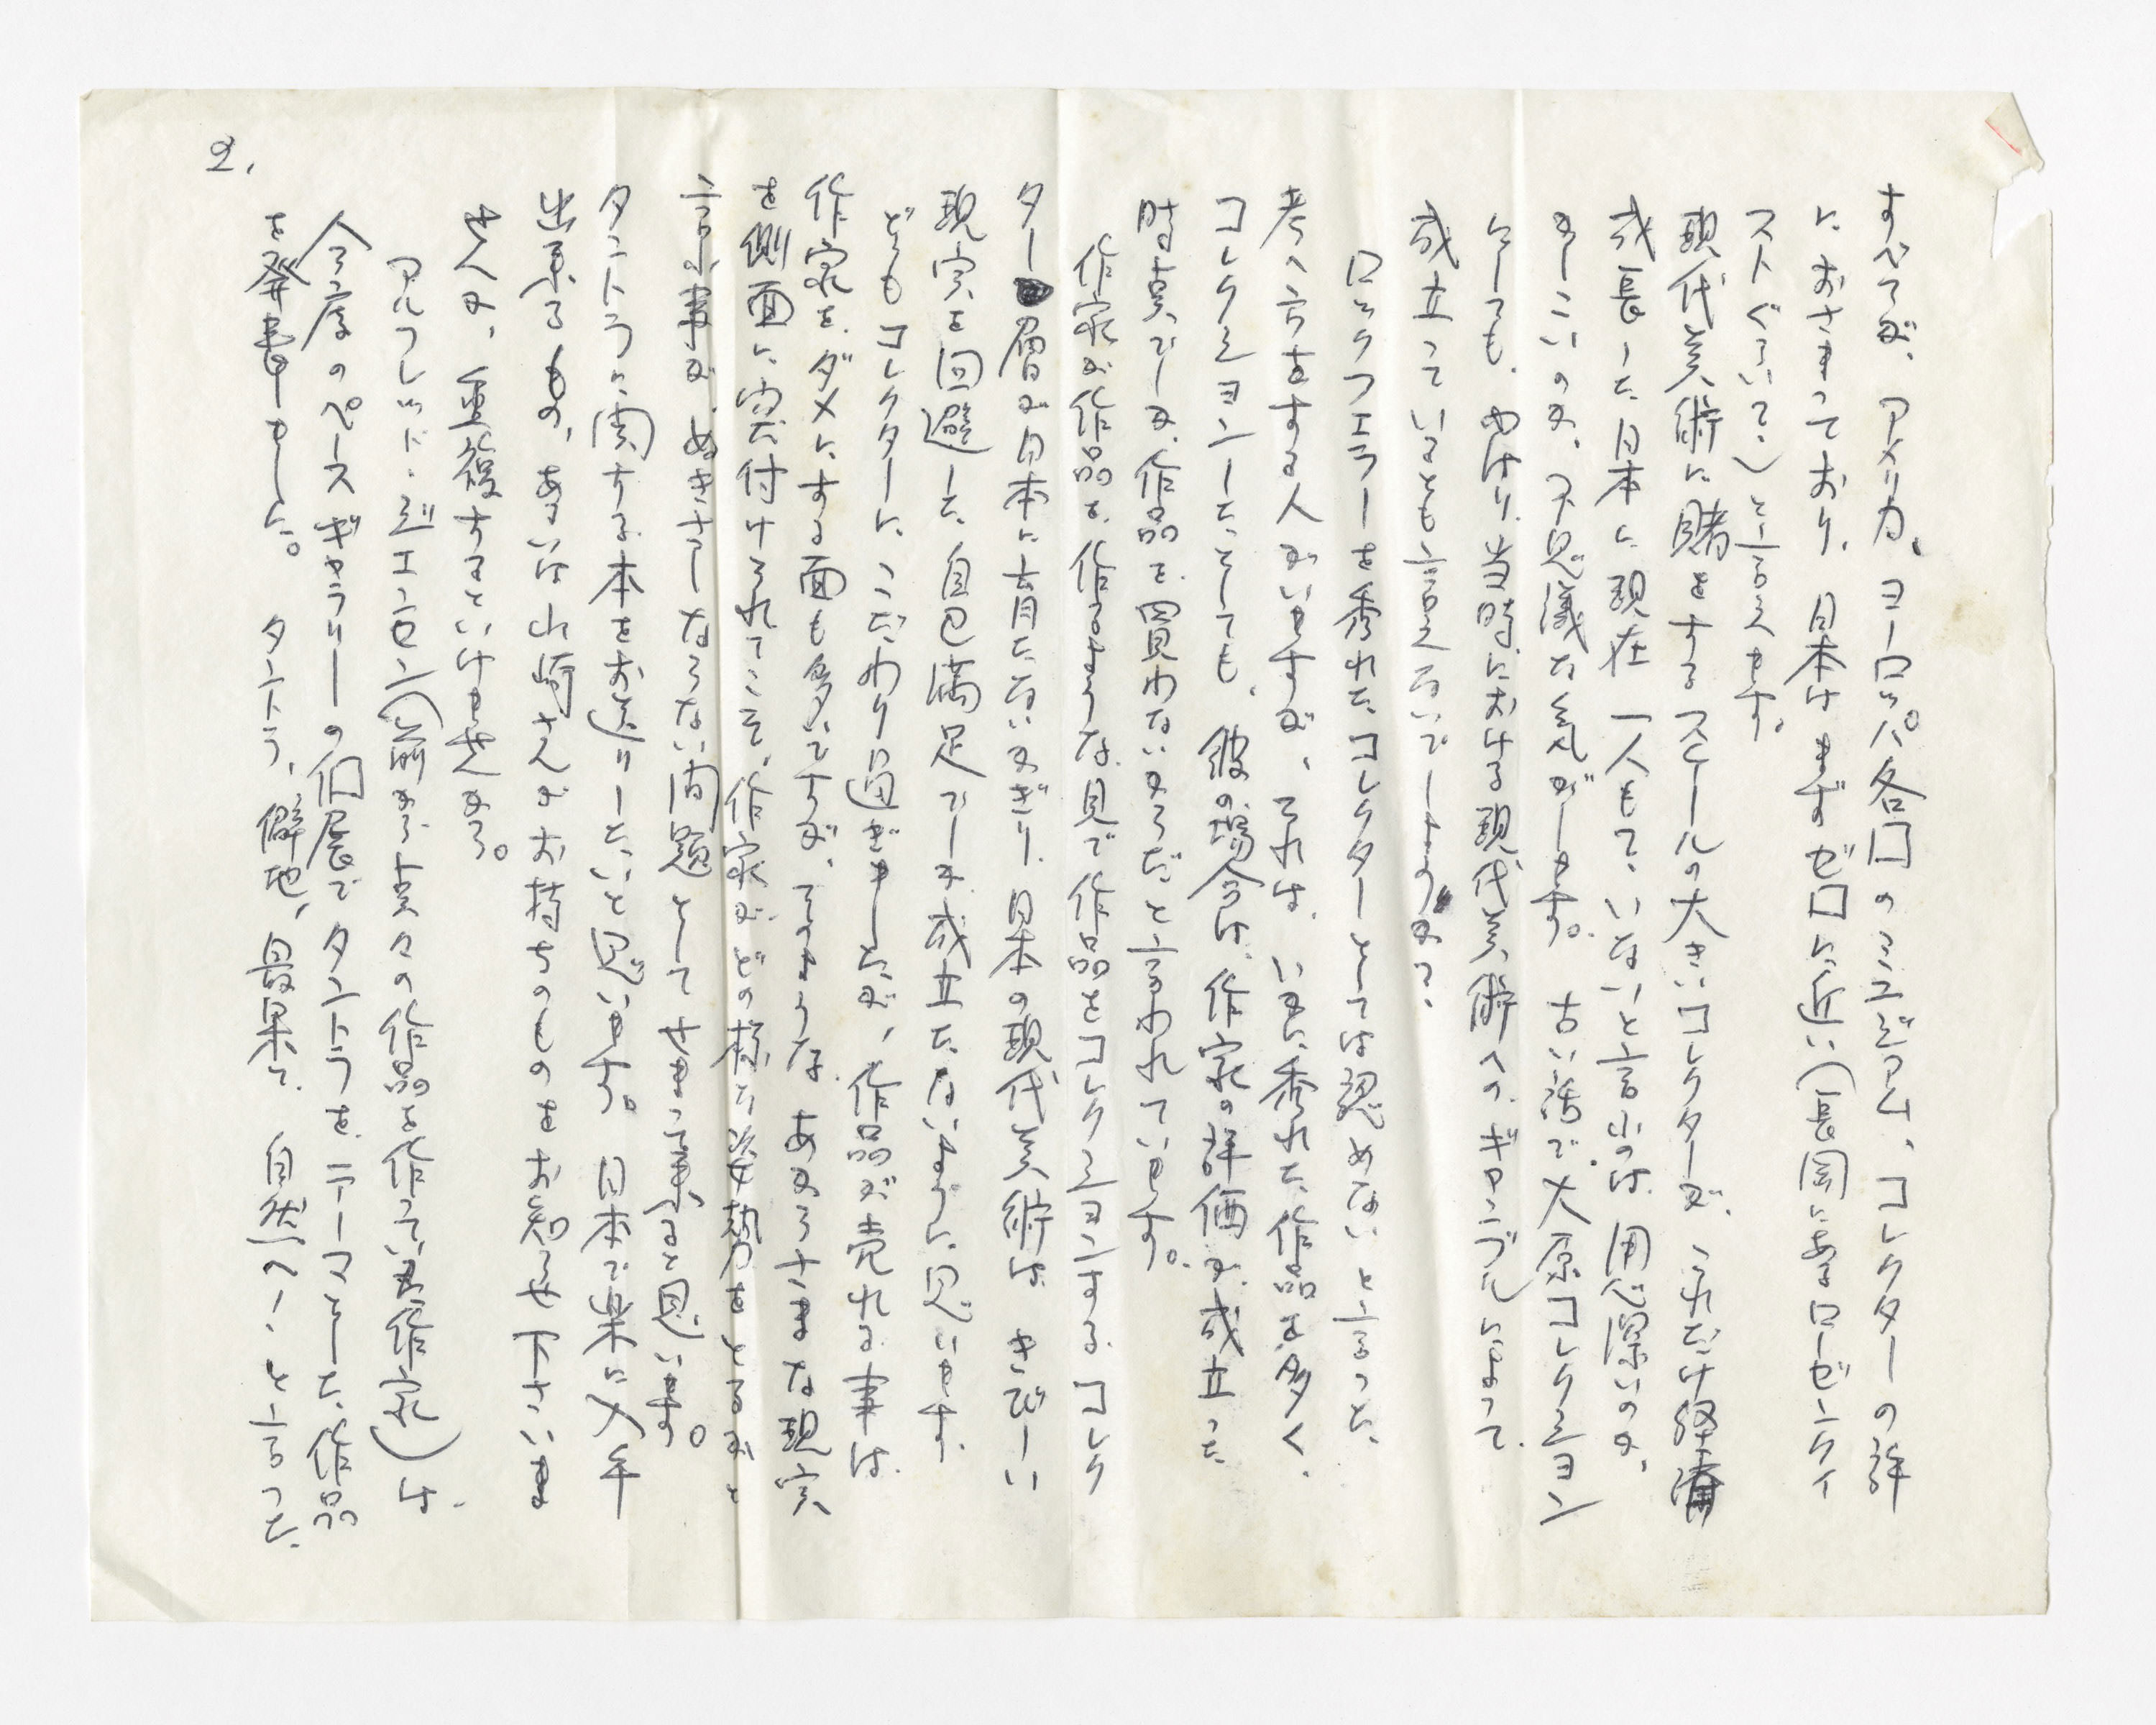 すべてが、アメリカ、ヨーロッパ各国のミュゼアム、コレクターの詳
におさまっており、日本はまずゼロに近い(長岡にあるローゼンクイ
ストぐらいで、)と言えます。
現代美術に賭をするスケールの大きいコレクターが、これだけ経済
成長した日本に現在一人もでていないと言うのは、用心深いのか、
ましこいのか、不思議な気がします。古い話で大原コレクション
にしても、やはり、当時における現代美術への、ギャンブルによって
成立っているとも言えないでしょうか?
ロックフェラーを秀れたコレクターとしては認めないと言った、
考へ方をする人がいますが、それは、いかに秀れた作品を多く、
コレクションしたとしても、彼の場合は、作家の評価が成立った
時点でしか、作品を買わないからだと言われています。
作家が作品を作るような具で作品をコレクションするコレク
ター層が日本に育たないかぎり、日本の現代美術は、きびしい
現実を回避した、自己満足でしか成立たないように思います。
どうもコレクターにこだわり過ぎましたが、作品が売れる事は
作家を、ダメにする面も多いですが、そのような、あからさまな現実
を側面に突き付けられてこそ、作家がどの様な姿勢をとるかと
言う事が、ぬきさしならない問題としてせまって来ると思います。
タントラに関する本をお送りしたいと思います。日本で楽に入手
出来るもの、あるいは山崎さんがお持ちのものをお知らせ下さいま
せんか、重複するといけませんから。
アルフレッド・ジェンセン(以前から点々の作品を作っている作家)は、
今度のペースギャラリーの個展でタントラを、テーマとした作品
を発表しました。タントラ、僻地、最果て、自然へ、と言った、
2.